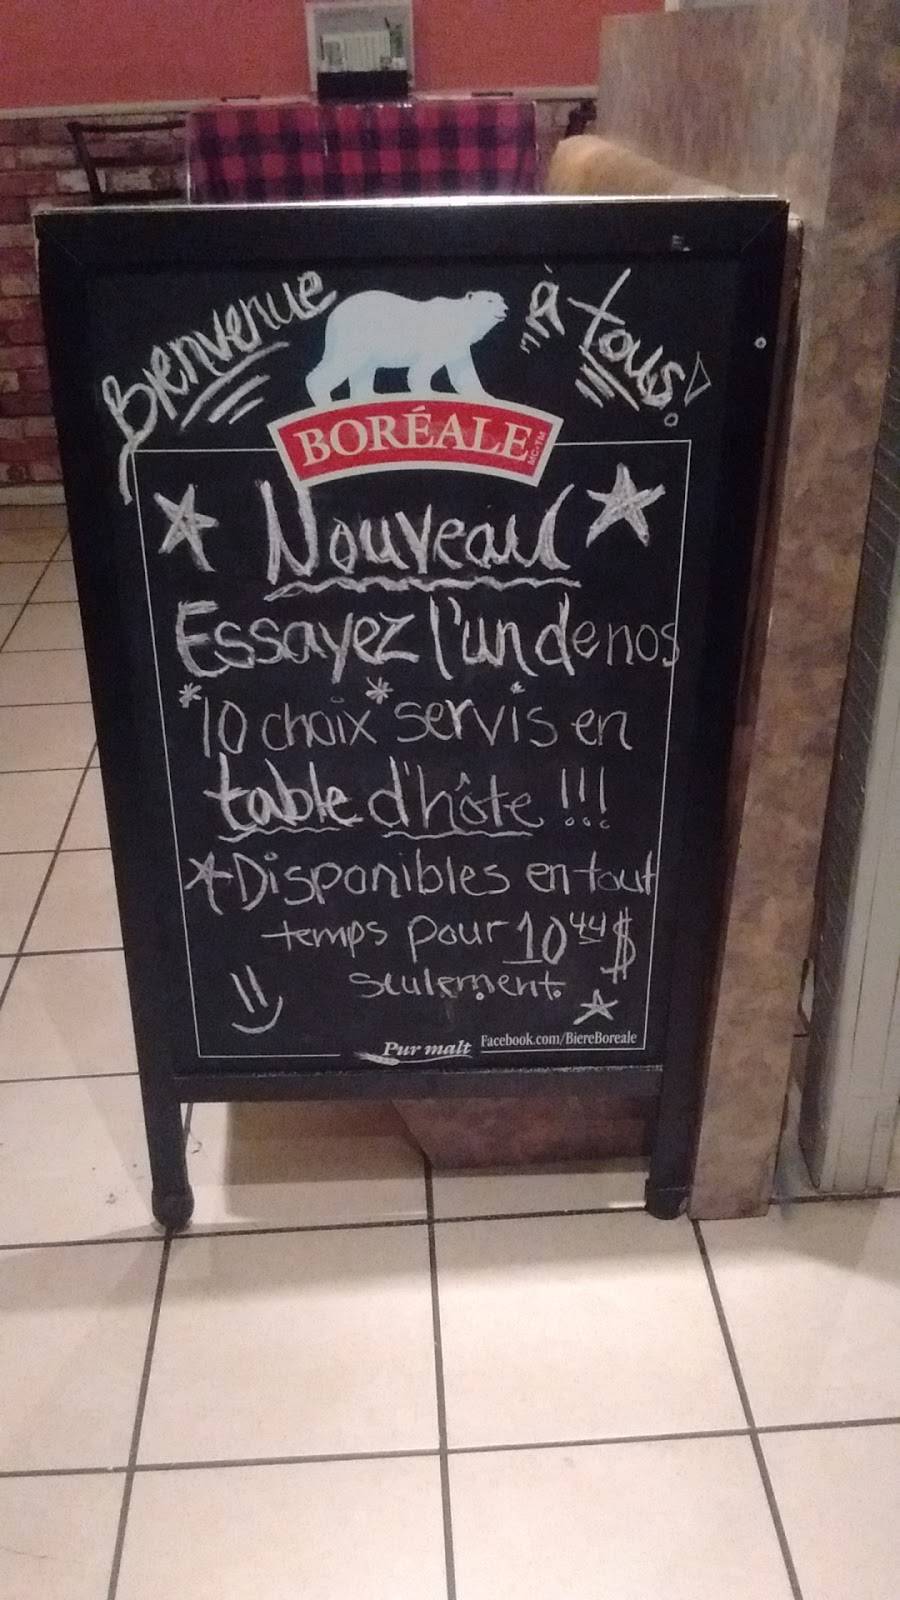 Bienvenue à tous!
BORÉALE MC·TM
Nouveau
Essayez l'un de nos
*10 choix* servis en
table d'hôte !!!
Disponibles en tout
temps pour 10 44 $
seulement.
Pur malt
Facebook.com/BiereBoreale